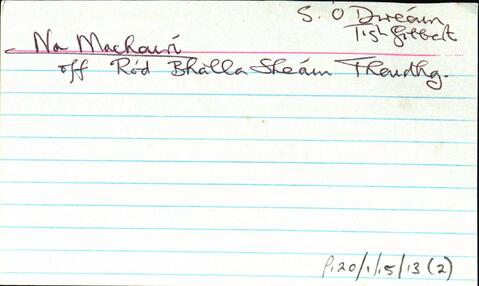 S. Ó Direáin
Tigh Gilbert
Na Machairí
off Ród Bhalla Sheáin Thaidhg.
P120/1/15/13 (2)